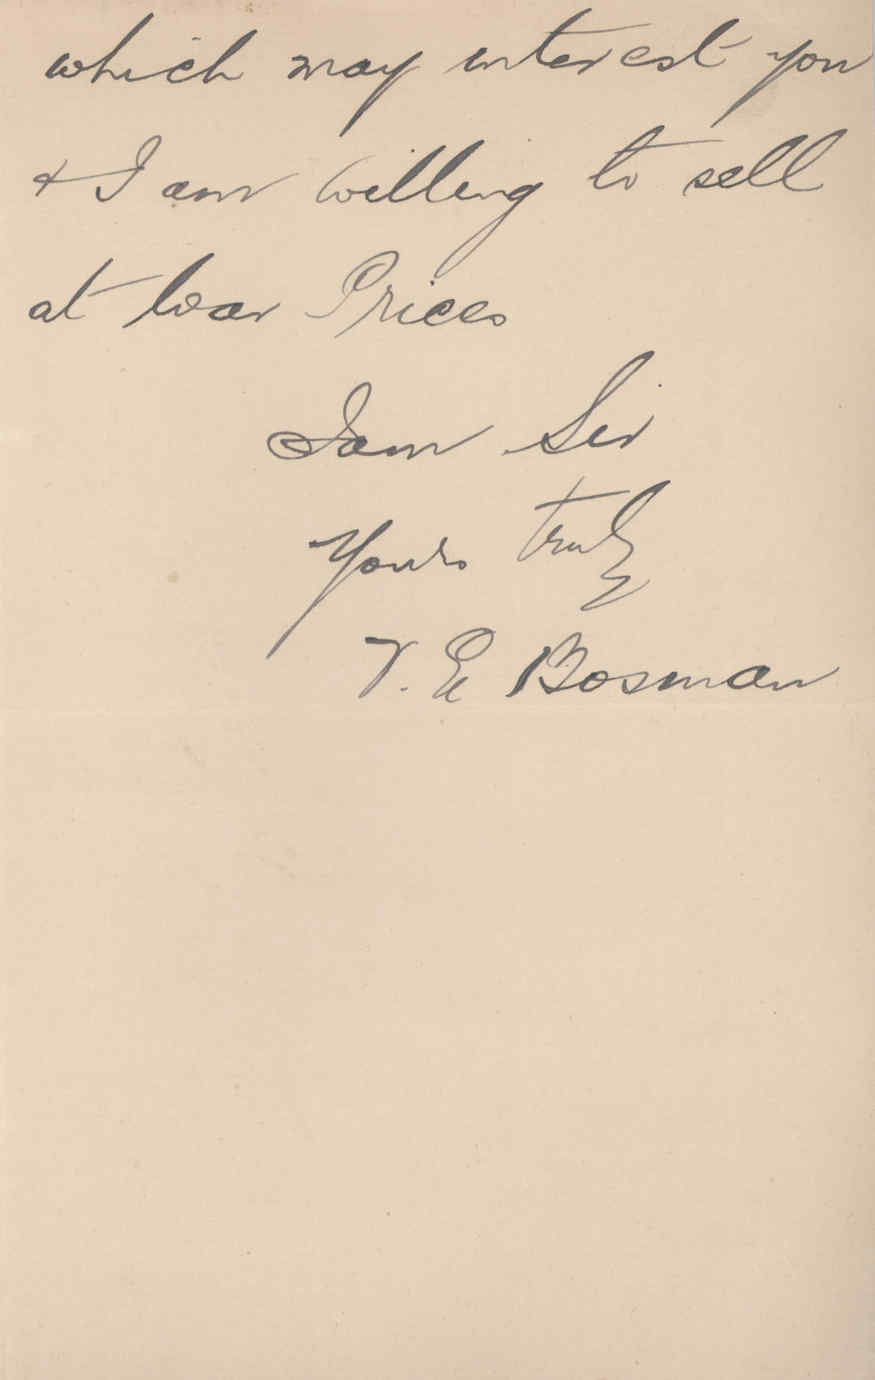 which may interest you
& I am willing to sell
at War Prices
I am Sir
Yours truly
V. E Bosman